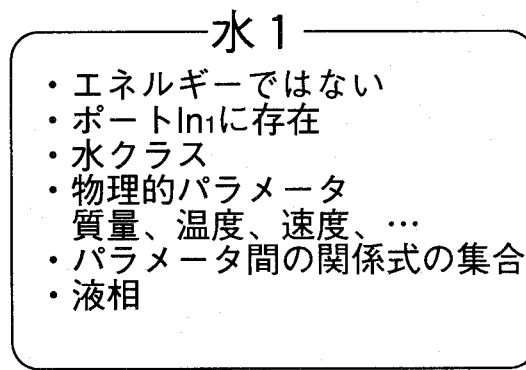 水1
・エネルギーではない
・ポートIn₁に存在
・水クラス
・物理的パラメータ
質量、温度、速度、…
・パラメータ間の関係式の集合
・液相